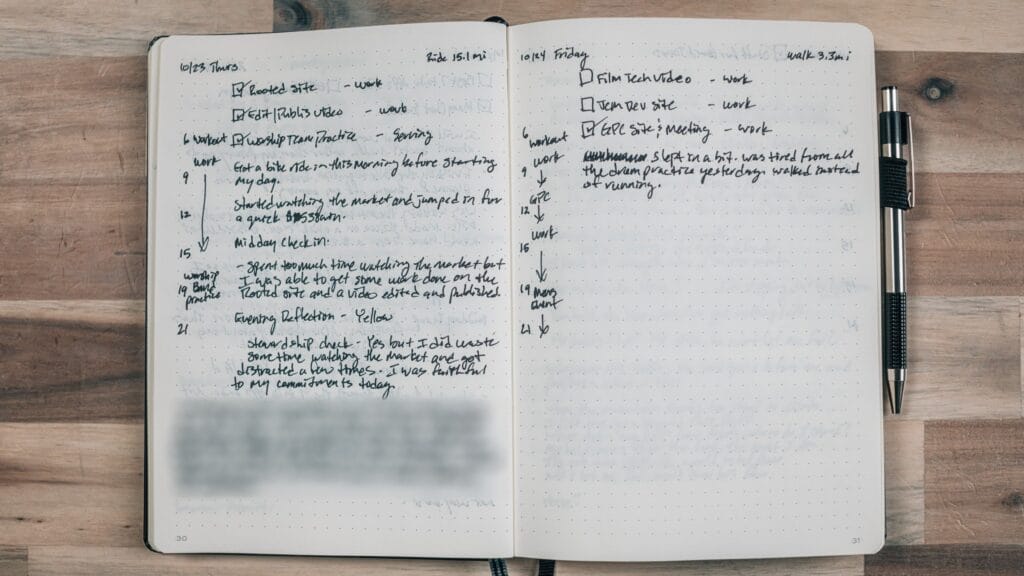 10/23 Thurs
Ride 15.1 mi
Rooted Site - work
Edit/Publis Video - work
6 workout
Worship Team Practice - Serving
work
Got a bike ride in this morning before starting
9
my day.
Started watching the market and jumped in for
12
a quick gain.
Midday check in.
15
- Spent too much time watching the market but
worship
I was able to get some work done on the
19 Band
Rooted site and a video edited and published
practice
21
Evening Reflection - Yellow
Stewardship check - Yes but I did waste
some time watching the market and got
distracted a few times. I was faithful
to my commitments today.
30
10/24 Friday
walk 3.3mi
Film Tech Video - work
Dev Site - work
6
GPC Site's Meeting - work
workout
work
slept in a bit. was tired from all
9
the drum practice yesterday. walked instead
of running.
GPC
12
work
15
19 Mens
Event
21
31